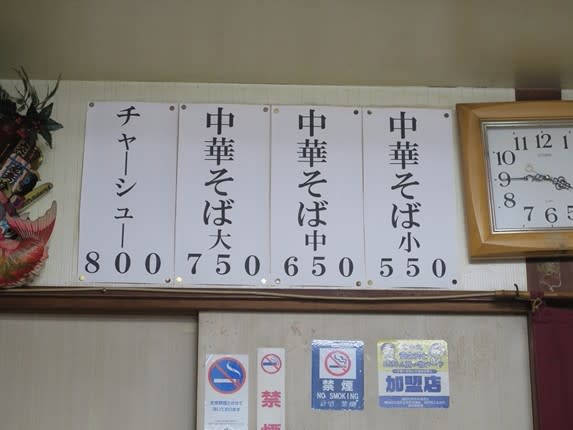 中華そば小
550
中華そば中
650
中華そば大
750
チャーシュー
800
禁煙
NO SMOKING
禁
加盟店
10 11 12
9
8 7 6 5